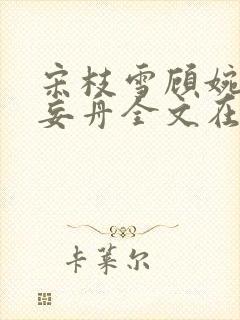 宋枝雪顾婉
妄丹全文在
卡莱尔